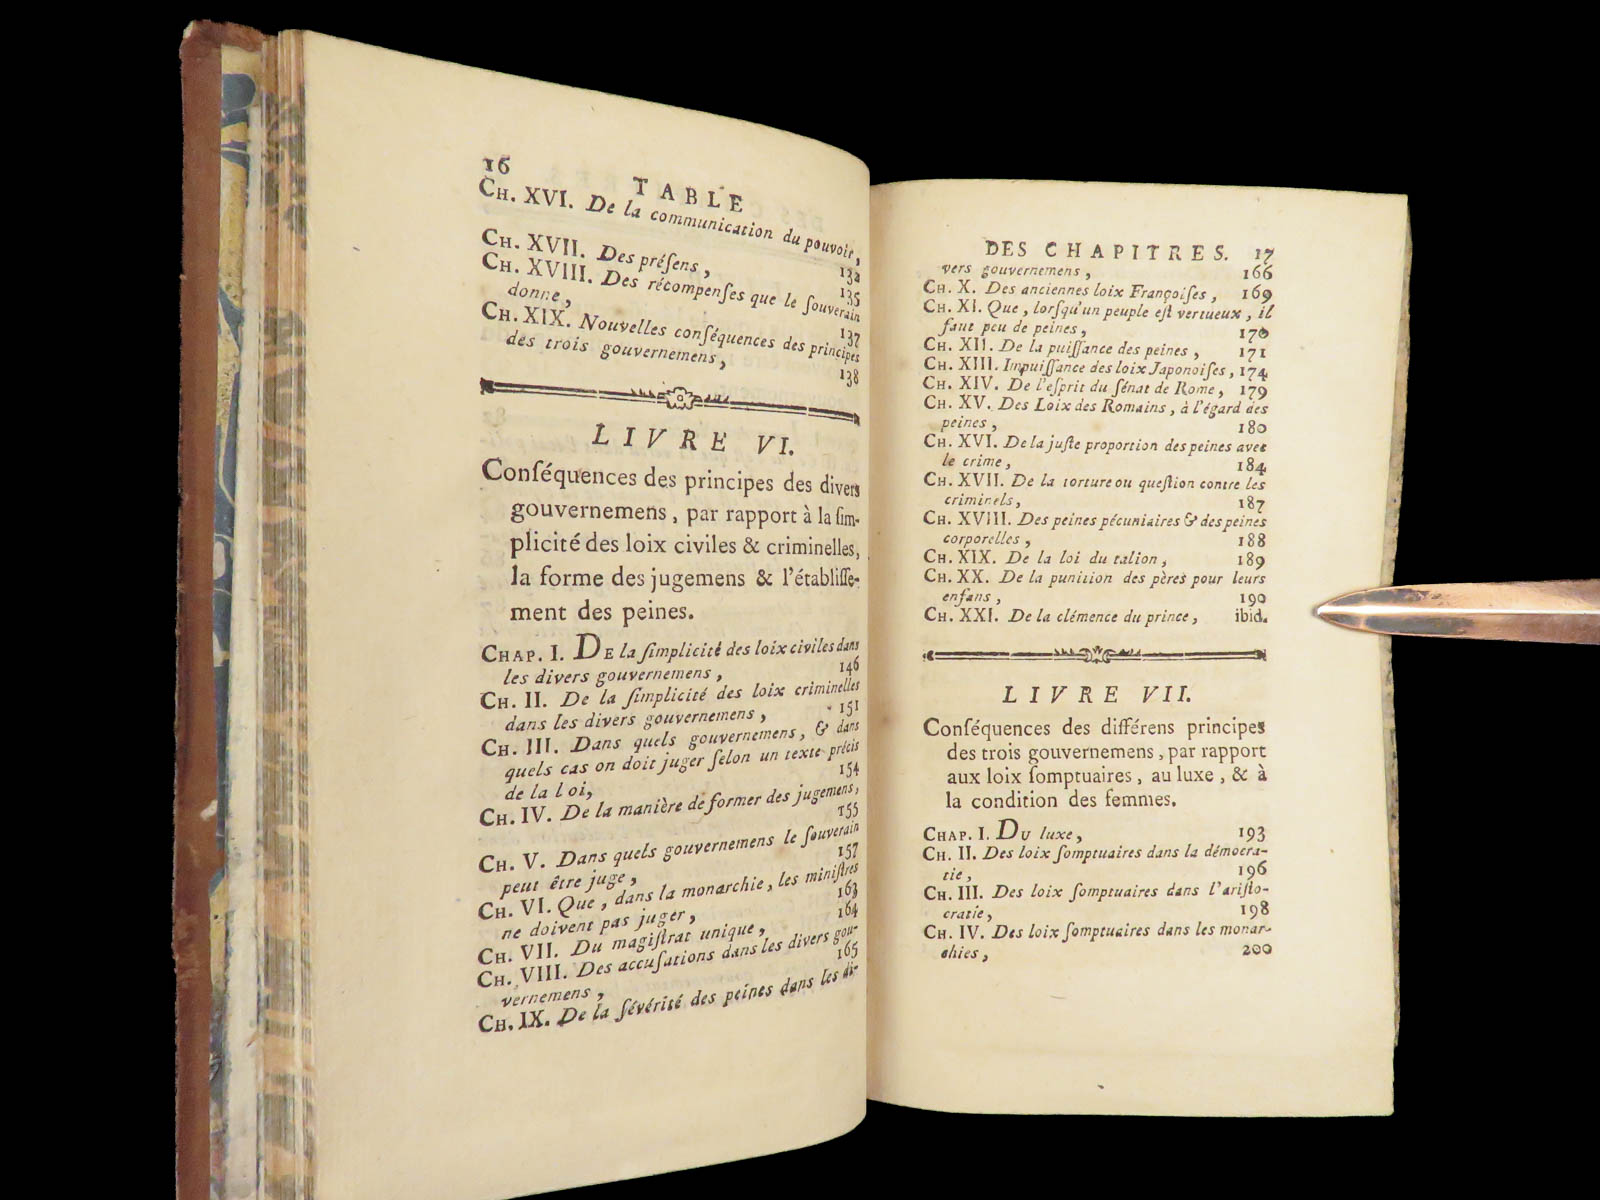 16
TABLE
CH. XVI. De la communication du pouvoir,
132
CH. XVII. Des préſens,
135
CH. XVIII. Des récompenſes que le ſouverain
donne,
137
CH. XIX. Nouvelles conſéquences des principes
des trois gouvernemens,
138
LIVRE VI.
Conſéquences des principes des divers
gouvernemens, par rapport à la ſim-
plicité des loix civiles & criminelles,
la forme des jugemens & l'établiſſe-
ment des peines.
CHAP. I. DE la ſimplicité des loix civiles dans
les divers gouvernemens, 146
CH. II. De la ſimplicité des loix criminelles
dans les divers gouvernemens, 151
CH. III. Dans quels gouvernemens, & dans
quels cas on doit juger ſelon un texte précis
de la loi, 154
CH. IV. De la manière de former des jugemens,
155
CH. V. Dans quels gouvernemens le ſouverain
peut être juge, 157
CH. VI. Que, dans la monarchie, les miniſtres
ne doivent pas juger, 163
CH. VII. Du magiſtrat unique, 164
CH. VIII. Des accuſations dans les divers gou-
vernemens, 165
CH. IX. De la ſévérité des peines dans les di-
DES CHAPITRES. 17
vers gouvernemens, 166
CH. X. Des anciennes loix Françoiſes, 169
CH. XI. Que, lorſqu'un peuple eſt vertueux, il
faut peu de peines, 170
CH. XII. De la puiſſance des peines, 171
CH. XIII. Impuiſſance des loix Japonoiſes, 174
CH. XIV. De l'eſprit du ſénat de Rome, 179
CH. XV. Des Loix des Romains, à l'égard des
peines, 180
CH. XVI. De la juſte proportion des peines avec
le crime, 184
CH. XVII. De la torture ou queſtion contre les
criminels, 187
CH. XVIII. Des peines pécuniaires & des peines
corporelles, 188
CH. XIX. De la loi du talion, 189
CH. XX. De la punition des pères pour leurs
enfans, 190
CH. XXI. De la clémence du prince, ibid.
LIVRE VII.
Conſéquences des différens principes
des trois gouvernemens, par rapport
aux loix ſomptuaires, au luxe, & à
la condition des femmes.
CHAP. I. DU luxe, 193
CH. II. Des loix ſomptuaires dans la démocra-
tie, 196
CH. III. Des loix ſomptuaires dans l'ariſto-
cratie, 198
CH. IV. Des loix ſomptuaires dans les monar-
chies, 200